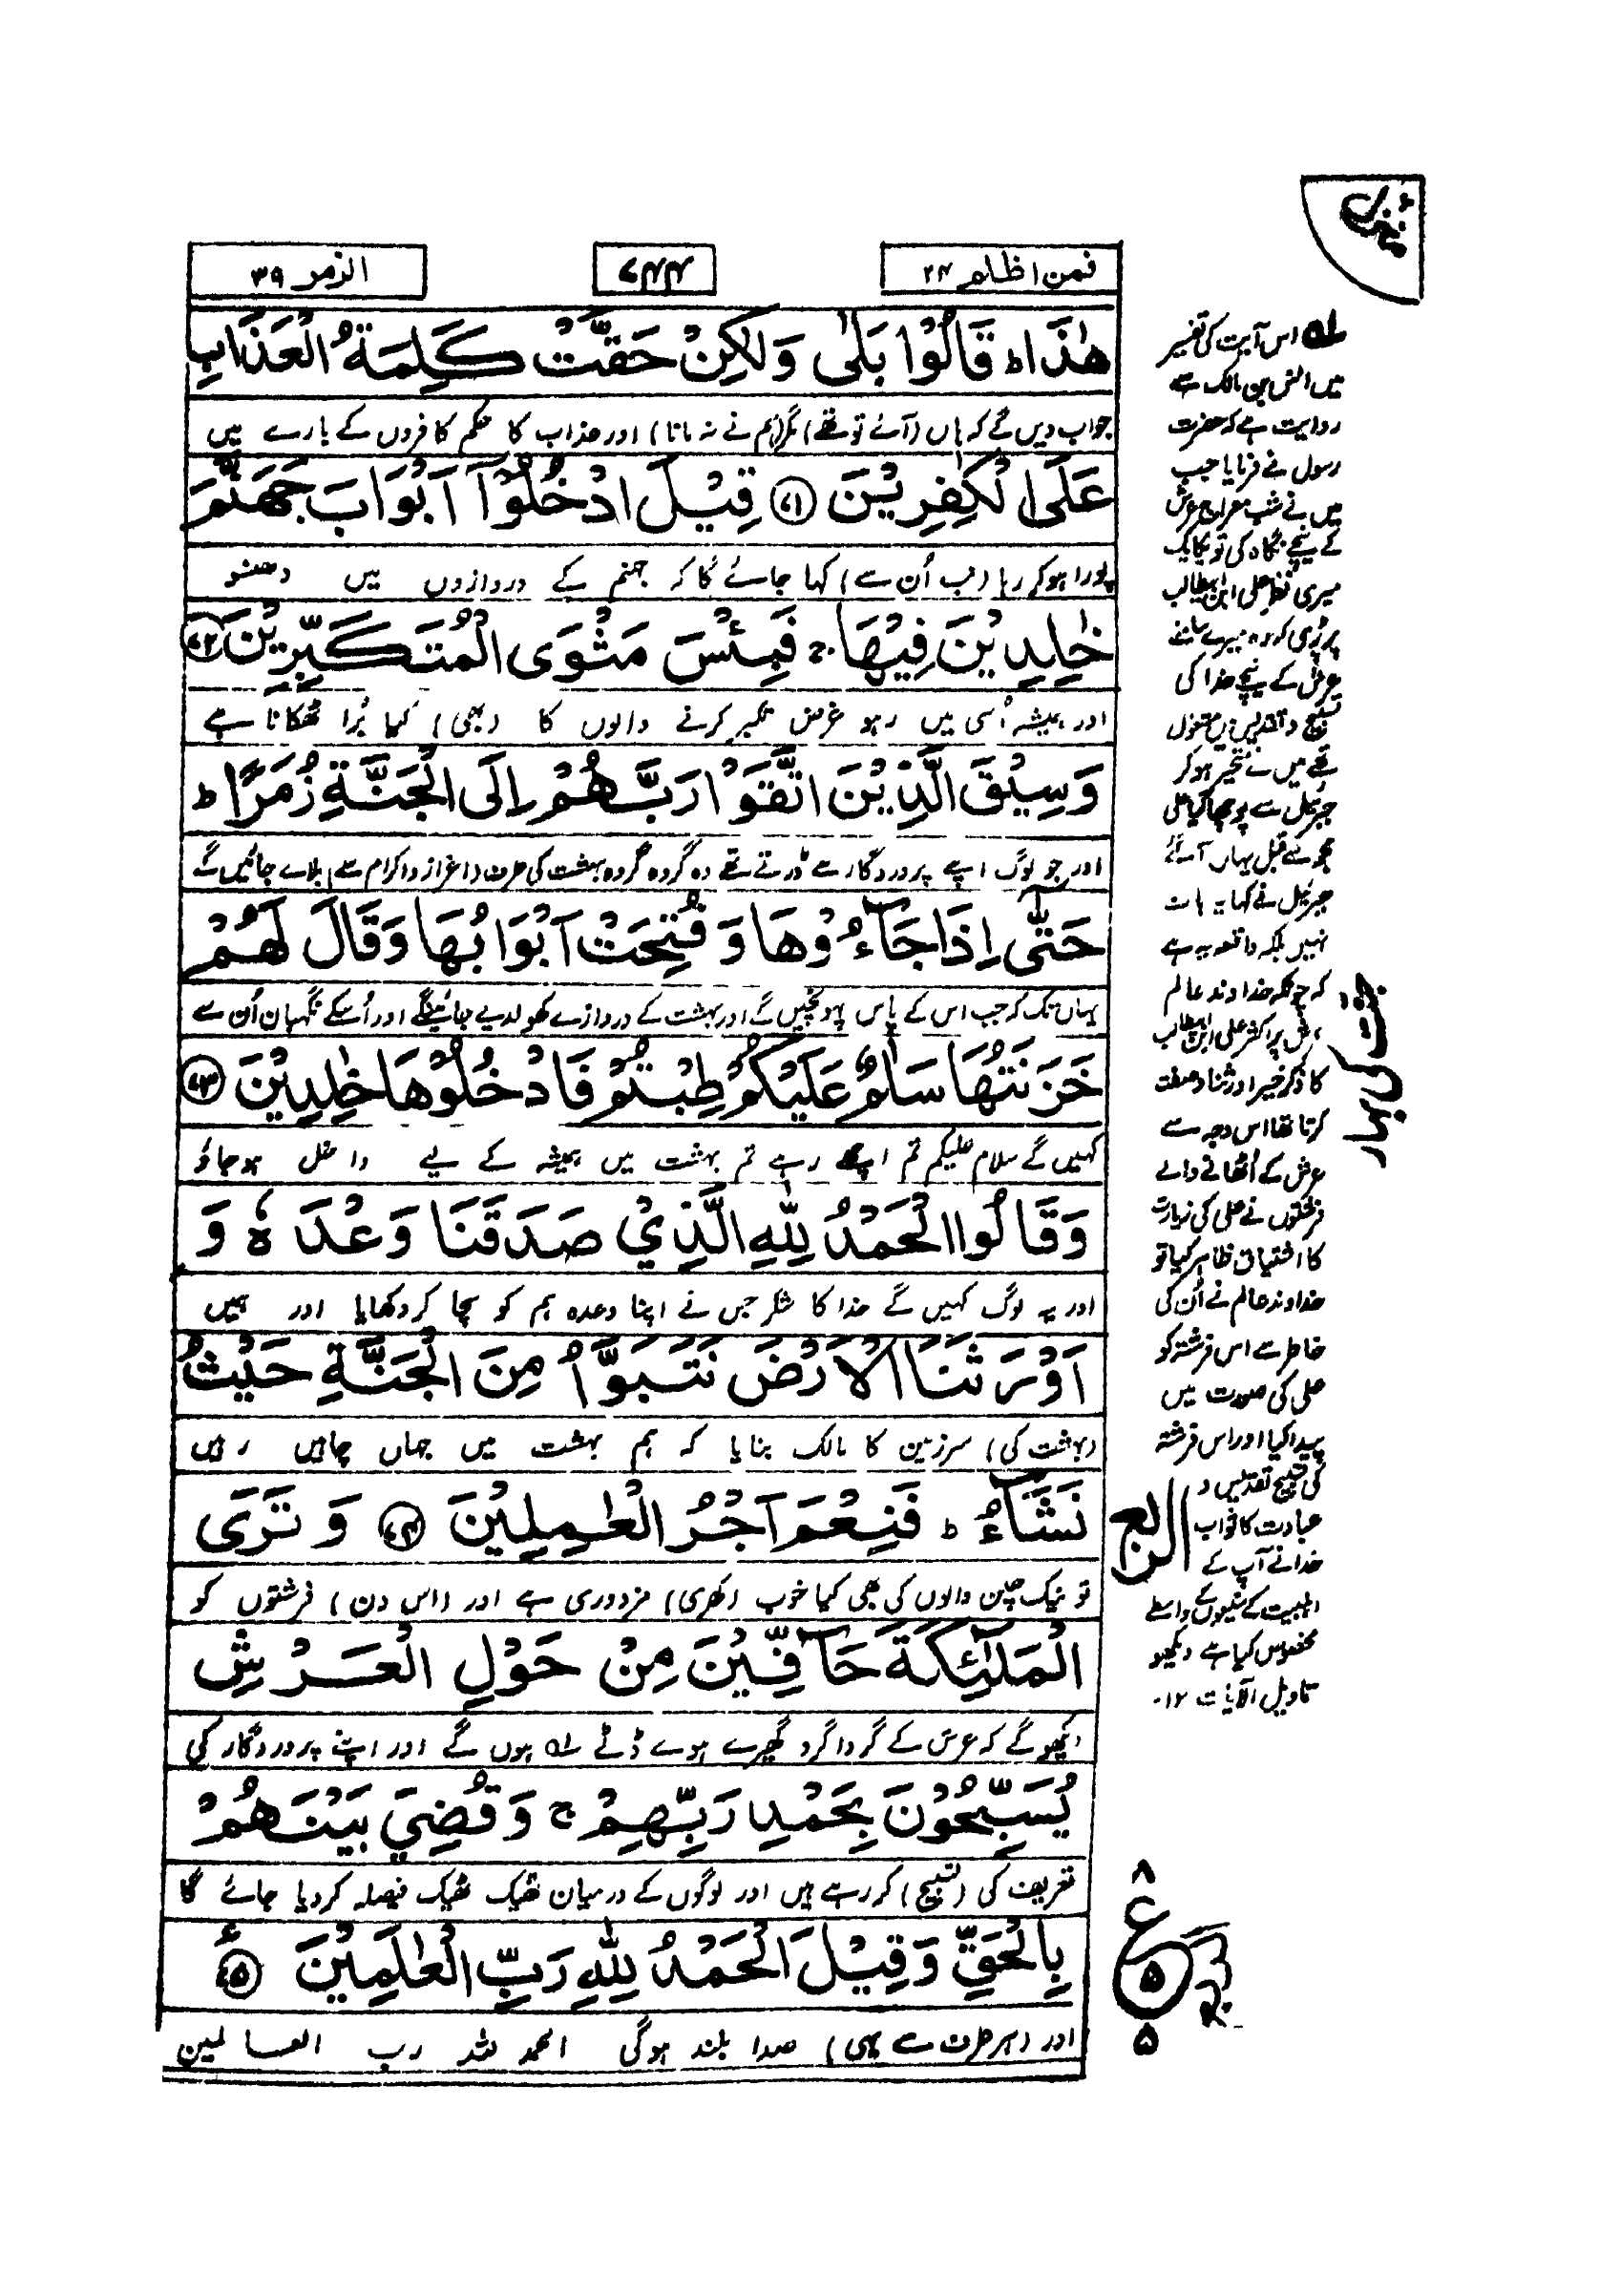 فمن اظلم ۲۴
۷۴۴
الزمر ۳۹
هٰذَا ؕ قَالُوْا بَلٰى وَلٰكِنْ حَقَّتْ كَلِمَةُ الْعَذَابِ
جواب دیں گے کہ ہاں (آئے تو تھے) مگر (ہم نے نہ مانا) اور عذاب کا حکم کافروں کے بارے میں
عَلَى الْكٰفِرِيْنَ ﴿۷۱﴾ قِيْلَ ادْخُلُوْٓا اَبْوَابَ جَهَنَّمَ
پورا ہو کر رہا (تب اُن سے) کہا جائے گا کہ جہنم کے دروازوں میں دھنسو
خٰلِدِيْنَ فِيْهَا ۚ فَبِئْسَ مَثْوَى الْمُتَكَبِّرِيْنَ ﴿۷۲﴾
اور ہمیشہ اُسی میں رہو غرض تکبر کرنے والوں کا (بھی) کیا بُرا ٹھکانا ہے
وَسِيْقَ الَّذِيْنَ اتَّقَوْا رَبَّهُمْ اِلَى الْجَنَّةِ زُمَرًا ؕ
اور جو لوگ اپنے پروردگار سے ڈرتے تھے وہ گروہ گروہ بہشت کی طرف (اعزاز و اکرام سے) بلائے جائیں گے
حَتّٰٓى اِذَا جَآءُوْهَا وَفُتِحَتْ اَبْوَابُهَا وَقَالَ لَهُمْ
یہاں تک کہ جب اس کے پاس پہونچیں گے اور بہشت کے دروازے کھول دیے جائینگے اور اُسکے نگہبان اُن سے
خَزَنَتُهَا سَلٰمٌ عَلَيْكُمْ طِبْتُمْ فَادْخُلُوْهَا خٰلِدِيْنَ ﴿۷۳﴾
کہیں گے سلام علیکم تم اچھے رہے تم بہشت میں ہمیشہ کے لیے داخل ہو جاؤ
وَقَالُوا الْحَمْدُ لِلّٰهِ الَّذِيْ صَدَقَنَا وَعْدَهٗ وَ
اور یہ لوگ کہیں گے خدا کا شکر جس نے اپنا وعدہ ہم کو سچا کر دکھایا اور ہمیں
اَوْرَثَنَا الْاَرْضَ نَتَبَوَّاُ مِنَ الْجَنَّةِ حَيْثُ
(بہشت کی) سرزمین کا مالک بنایا کہ ہم بہشت میں جہاں چاہیں رہیں
نَشَآءُ ؕ فَنِعْمَ اَجْرُ الْعٰمِلِيْنَ ﴿۷۴﴾ وَتَرَى
تو نیک چلن والوں کی بھی کیا خوب (کھری) مزدوری ہے اور (اس دن) فرشتوں کو
الْمَلٰٓئِكَةَ حَآفِّيْنَ مِنْ حَوْلِ الْعَرْشِ
دیکھو گے کہ عرش کے گرداگرد گھیرے ہوے ڈٹے ۱ ہوں گے اور اپنے پروردگار کی
يُسَبِّحُوْنَ بِحَمْدِ رَبِّهِمْ ۚ وَقُضِيَ بَيْنَهُمْ
تعریف کی (تسبیح) کر رہے ہیں اور لوگوں کے درمیان ٹھیک ٹھیک فیصلہ کر دیا جائے گا
بِالْحَقِّ وَقِيْلَ الْحَمْدُ لِلّٰهِ رَبِّ الْعٰلَمِيْنَ ﴿۷۵﴾
اور (ہر طرف سے یہی) صدا بلند ہوگی الحمد للہ رب العالمین
۱ اس آیت کی تفسیر
میں انس بن مالک سے
روایت ہے کہ حضرت
رسول نے فرمایا جب
میں نے شب معراج عرش
کے نیچے نگاہ کی تو یکایک
میری نظر علی ابن ابیطالب
پر پڑی کہ وہ میرے سامنے
عرش کے نیچے خدا کی
تسبیح و تقدیس میں مشغول
تھے میں نے متحیر ہو کر
جبرئیل سے پوچھا کیا علی
مجھ سے قبل یہاں آئے
جبرئیل نے کہا یہ بات
نہیں بلکہ واقعہ یہ ہے
کہ چونکہ خداوند عالم
عرش پر اکثر علی ابن ابیطالب
کا ذکر خیر اور ثنا و صفت
کرتا تھا اس وجہ سے
عرش کے اُٹھانے والے
فرشتوں نے علی کی زیارت
کا اشتیاق ظاہر کیا تو
خداوند عالم نے اُن کی
خاطر سے اس فرشتہ کو
علی کی صورت میں
پیدا کیا اور اس فرشتہ
کی تسبیح تقدیس و
عبادت کا ثواب
خدا نے آپ کے
اہلبیت کے شیعوں کے واسطے
مخصوص کیا ہے دیکھو
تاویل الآیات ۱۲۔
جنت کی بہار
الربع
۸
ع
۵
۵